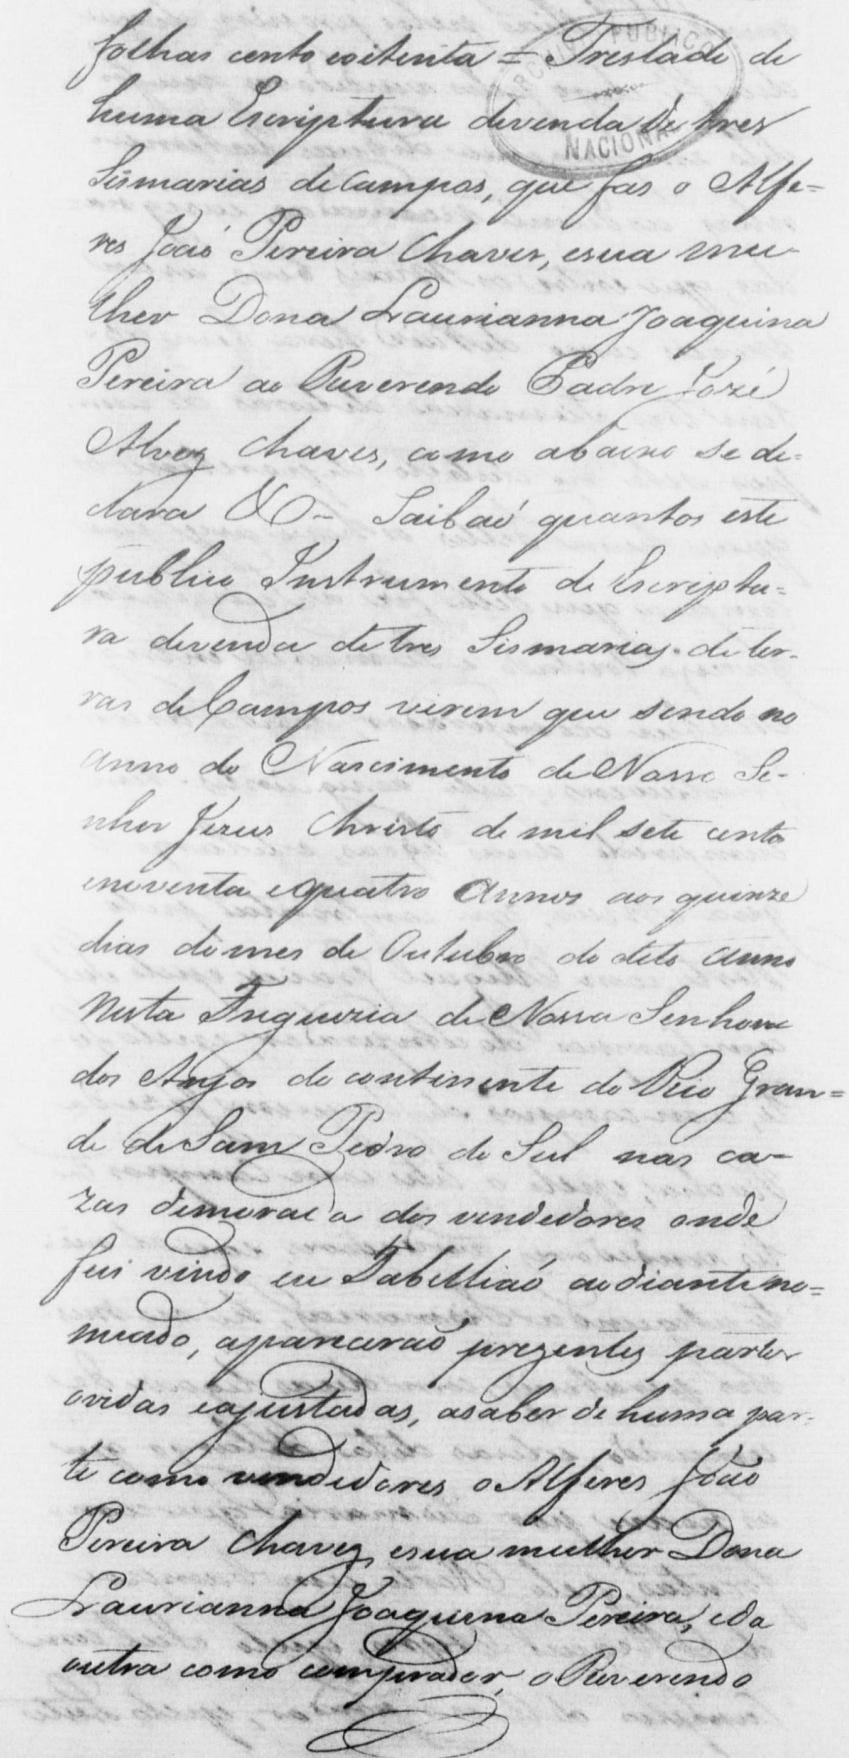 folhas cento eoitenta = Treslado de
huma Escriptura devenda de tres
Sismarias de Campos, que fas o Alfe=
res João Pereira Chaves, esua mu-
lher Dona Laurianna Joaquina
Pereira ao Reverendo Padre Jozé
Alvez Chaves, como abaixo se de=
clara &- Saibaõ quantos este
publico Instrumento de Escriptu=
ra devenda de tres Sismarias de ter-
ras de Campos virem que sendo no
anno do Nascimento de Nosso Se-
nhor Jezus Christo de mil sete cento
enoventa equatro Annos aos quinze
dias do mes de Outubro do dito Anno
Nesta Freguezia de Nossa Senhora
dos Anjos do continente do Rio Gran=
de de Sam Pedro do Sul nas ca-
zas demorada dos vendedores onde
fui vindo eu Tabelliaõ aodiante no=
meado, aparecerão prezentes partes
ovidas eajustadas, asaber de huma par-
te como vendedores o Alferes João
Pereira Chavez esua mulher Dona
Laurianna Joaquina Pereira, eda
outra como comprador, o Reverendo
ARCHIVO PUBLICO
NACIONAL